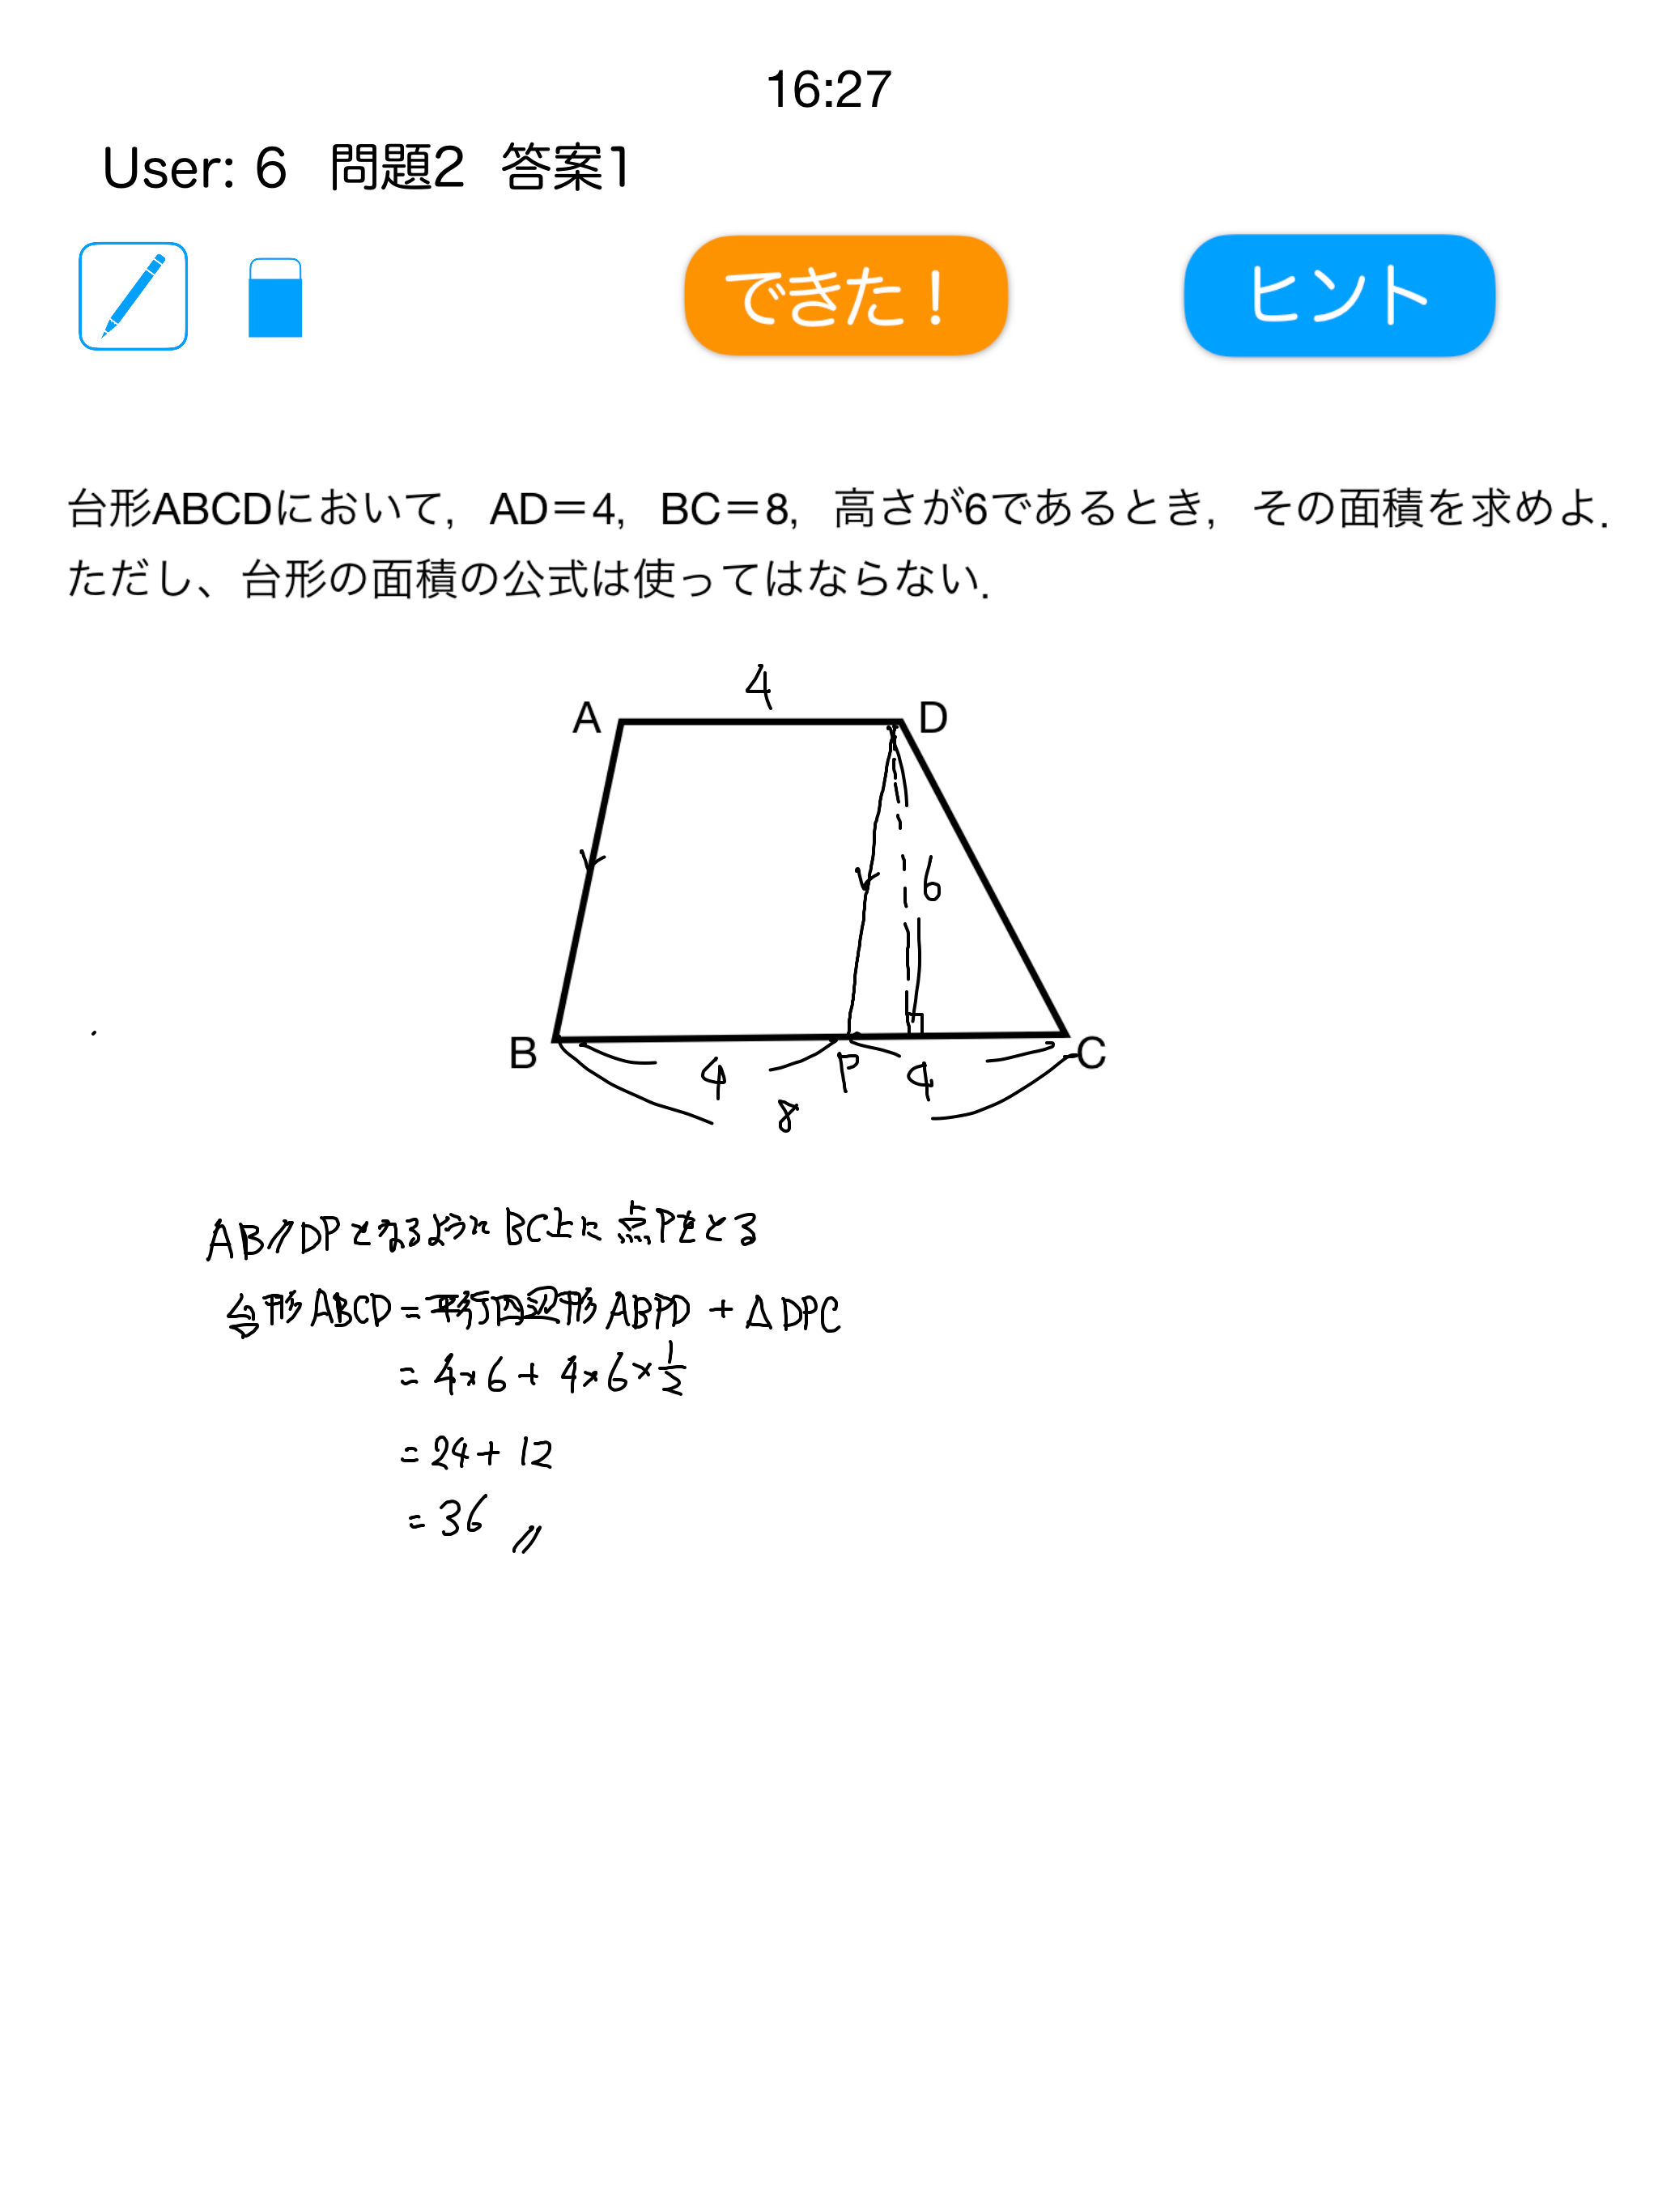 16:27
User: 6 問題2 答案1
できた！
ヒント
台形ABCDにおいて，AD＝4，BC＝8，高さが6であるとき，その面積を求めよ．
ただし、台形の面積の公式は使ってはならない．
4
A
D
6
B
C
4
P
4
8
AB//DPとなるようにBC上に点Pをとる
台形ABCD=平行四辺形ABPD+△DPC
=4×6+4×6×1/2
=24+12
=36 //